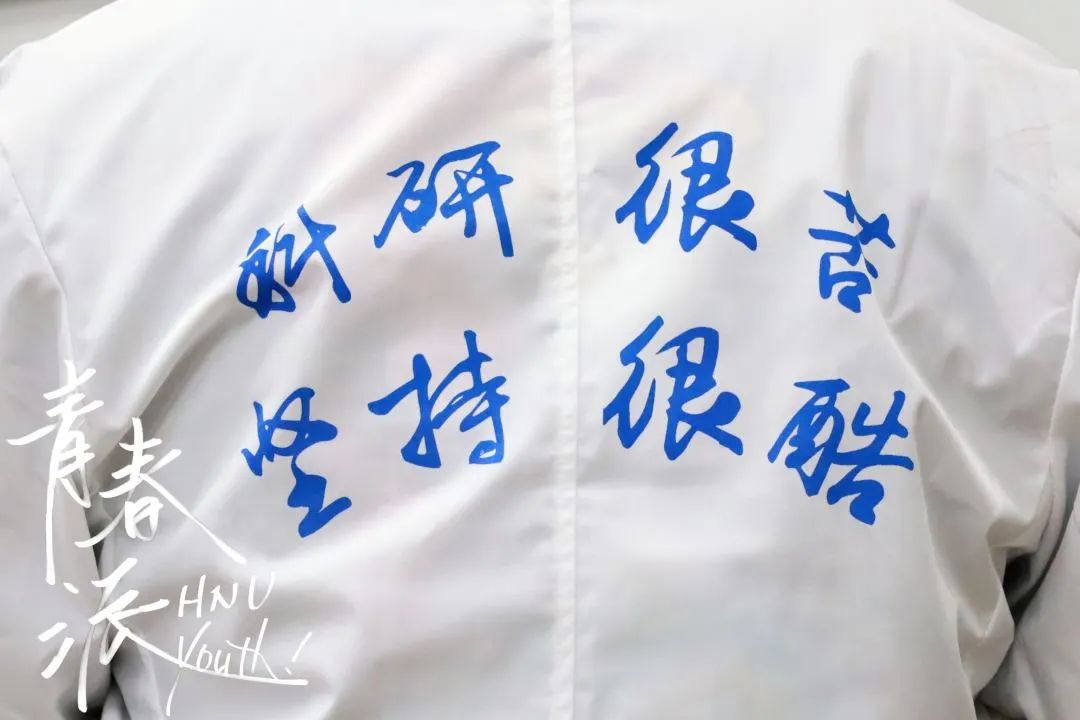 科研很苦
坚持很酷
青春派
HNU
Youth!